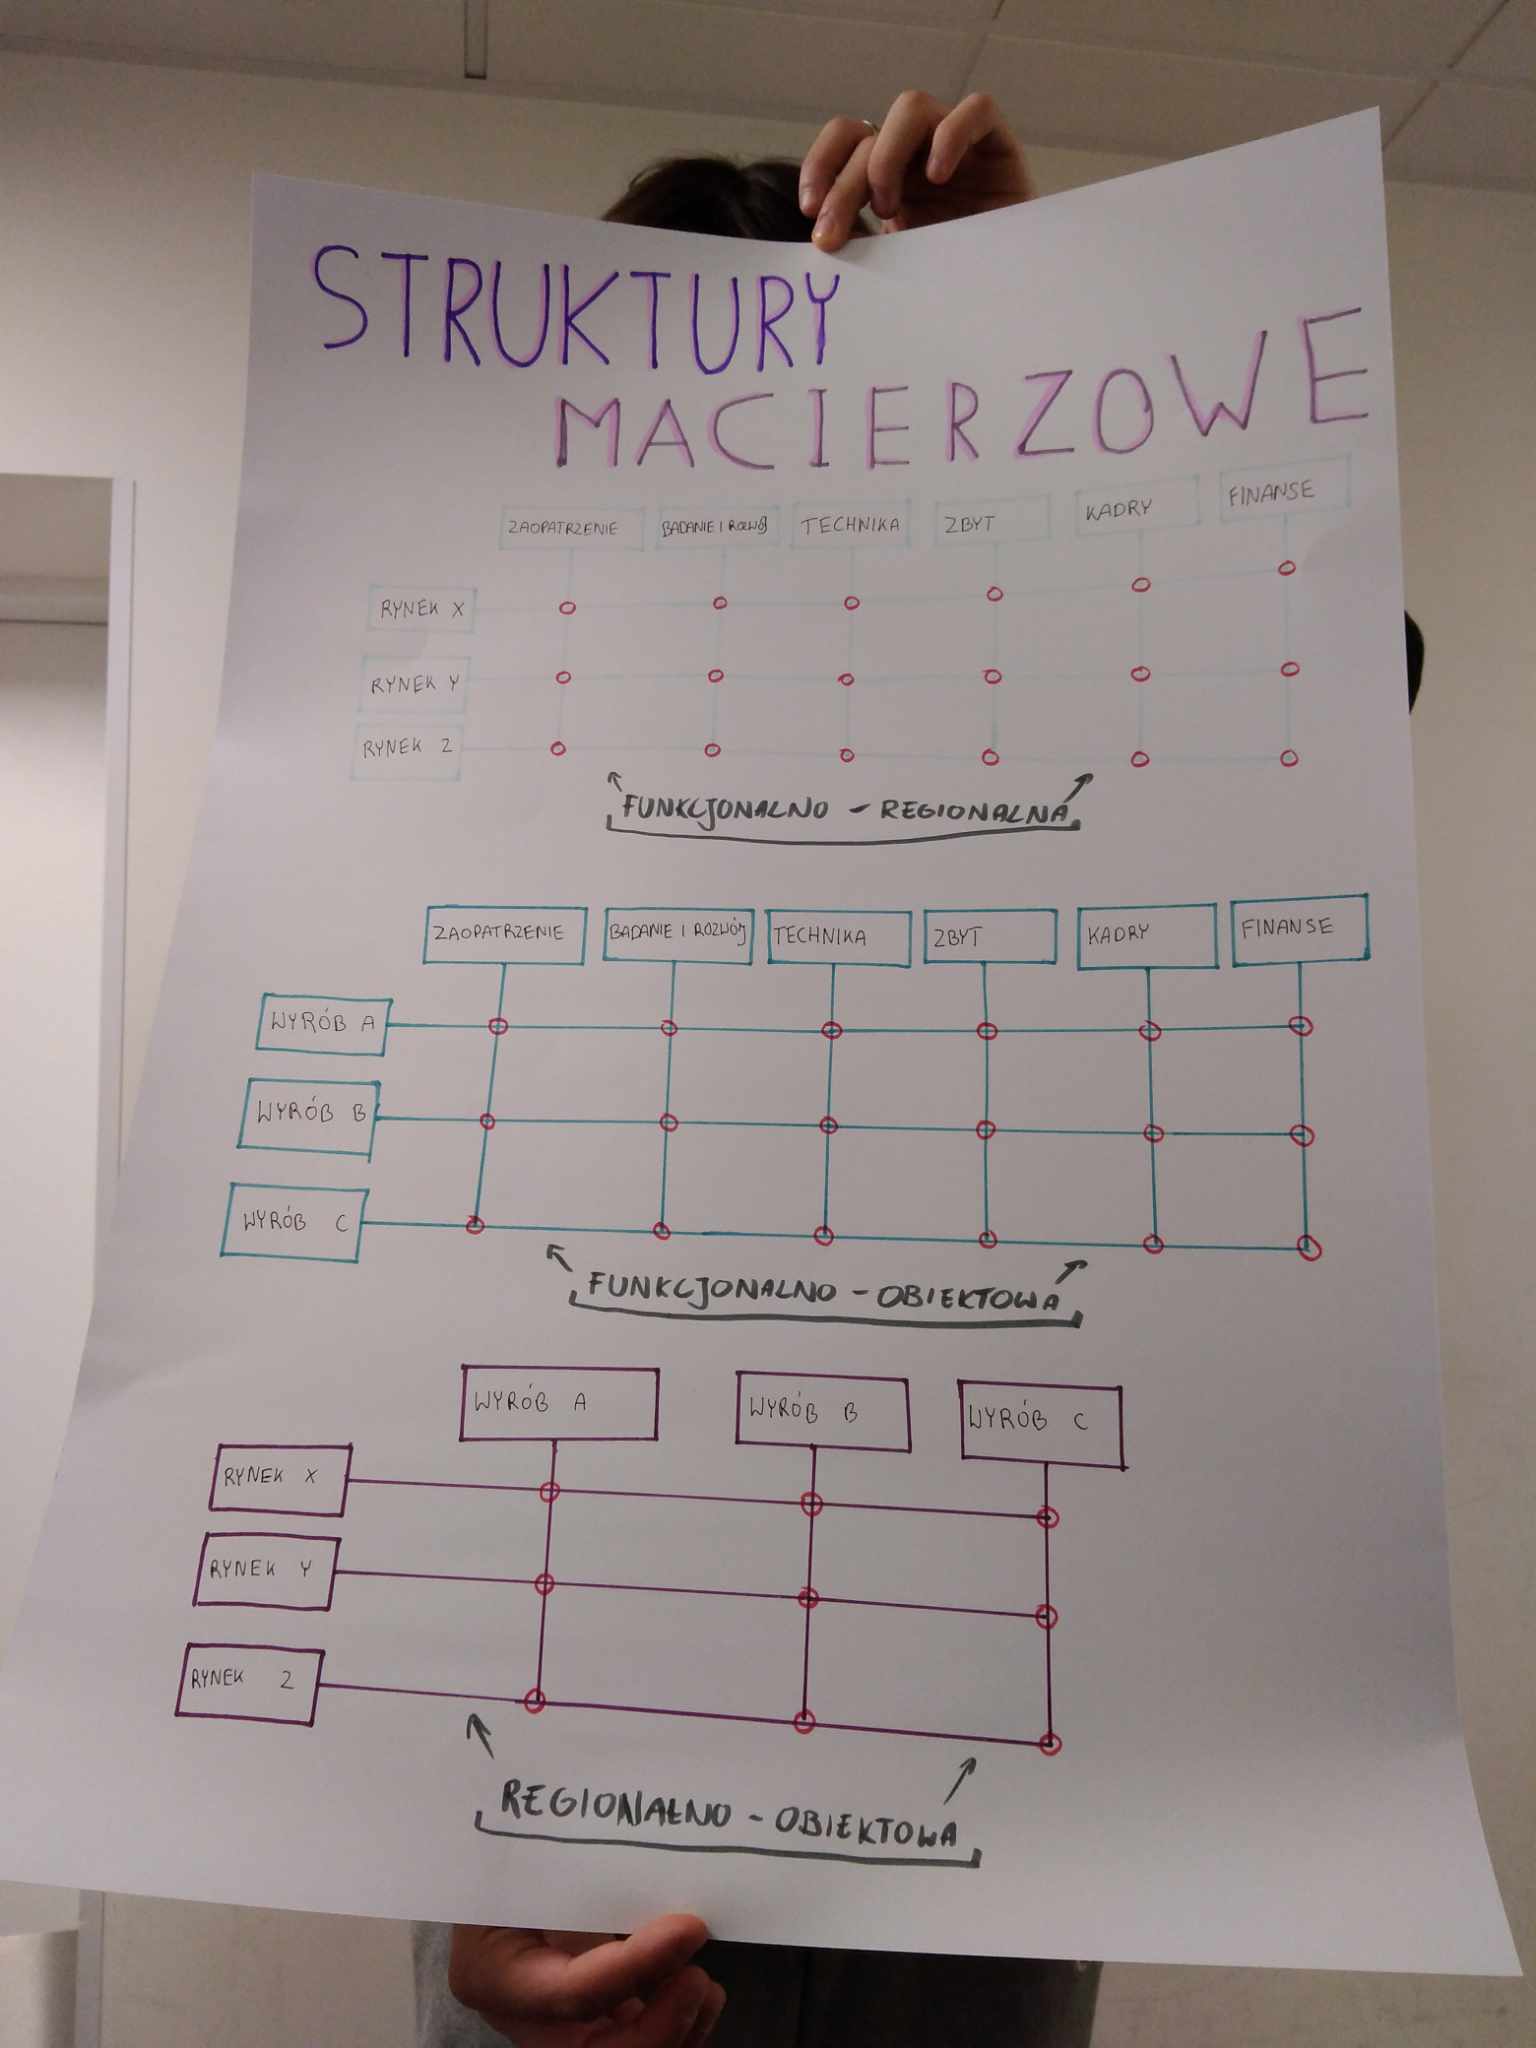 STRUKTURY
MACIERZOWE
ZAOPATRZENIE BADANIE I ROZWÓJ TECHNIKA ZBYT KADRY FINANSE
RYNEK X
RYNEK Y
RYNEK Z
FUNKCJONALNO - REGIONALNA
ZAOPATRZENIE BADANIE I ROZWÓJ TECHNIKA ZBYT KADRY FINANSE
WYRÓB A
WYRÓB B
WYRÓB C
FUNKCJONALNO - OBIEKTOWA
WYRÓB A WYRÓB B WYRÓB C
RYNEK X
RYNEK Y
RYNEK Z
REGIONALNO - OBIEKTOWA